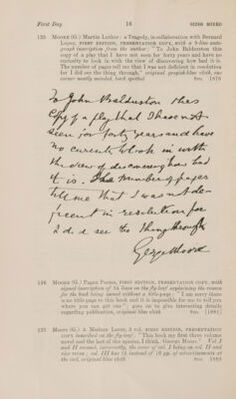 First Day 18 8IHS MIXED
133 MOORE (G.) Martin Luther: a Tragedy, in collaboration with Bernard
Lopez, FIRST EDITION, PRESENTATION COPY, with a 9-line auto-
graph inscription from the author: "To John Balderston this
copy of a play that I have not seen for forty years and have no
curiosity to look in with the view of discovering how bad it is.
The number of pages tell me that I was not deficient in resolution
for I did see the thing through," original greyish-blue cloth, one
corner mostly missing, loose spotted 8vo. 1879
To John Balderston this
Copy of a play that I have not
seen for forty years and have
no curiosity to look in with
the view of discovering how bad
it is. The number of pages
tell me that I was not de-
ficient in resolution for
I did see the thing through
George Moore
134 MOORE (G.) Pagan Poems, FIRST EDITION, PRESENTATION COPY, with
signed inscription of 14 lines on the fly-leaf explaining the reason
for the book being issued without a title-page: "I am sorry there
is no title-page to this book and it is impossible for me to tell you
where you can get one" goes on to give interesting details
regarding publication, original cloth 8vo. [1881]
135 MOORE (G.) A Modern Lover, 3 vol. FIRST EDITION, PRESENTATION
COPY inscribed on the fly-leaf: "This book my first three volume
novel and the last of the species, I think. George Moore." Vol. I
and II recased, incorrectly, the cover of vol. I being on vol. II and
vice versa; vol. III has
the end, original blue cloth 8vo. 1883